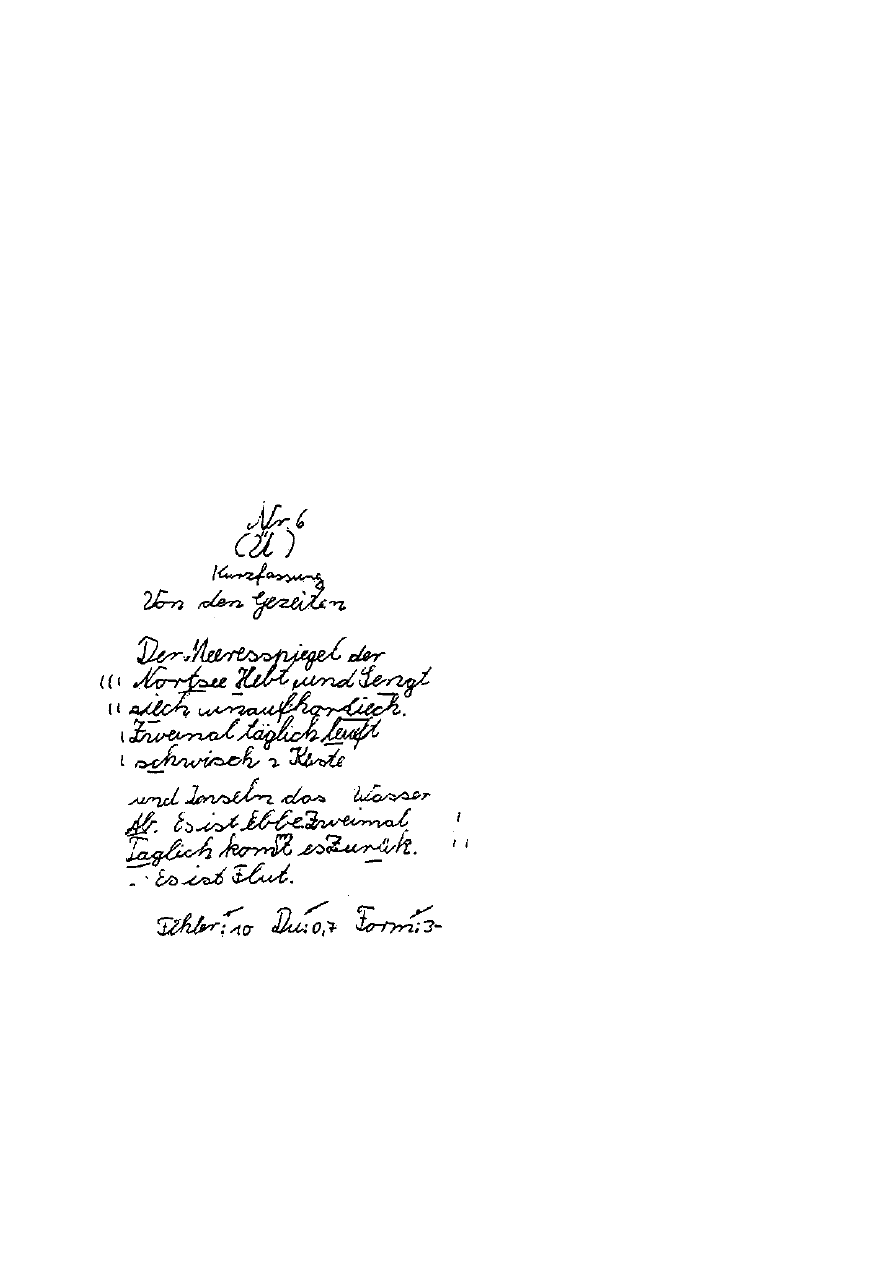 Nr. 6
(Ü)
Kurzfassung
Von den Gezeiten
Der Meeresspiegel der
Nortsee Hebt und Sengt
siech unaufhorliech.
Zweimal täglich leuft
schwisch n Küste
und Inseln das Wasser
Ab. Es ist Ebbe Zweimal
Täglich komt es Zurük.
Es ist Flut.
Fehler: 10 Du: 0,7 Form: 3-